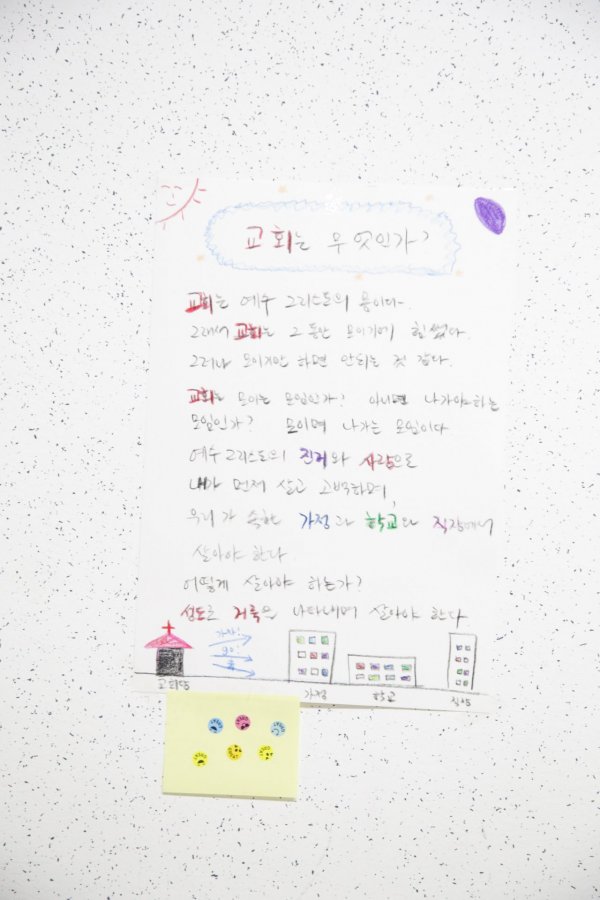 교회는 무엇인가?
교회는 예수 그리스도의 몸이다
그래서 교회는 그 동안 모이기에 힘썼다
그러나 모이기만 하면 안되는 것 같다.
교회는 모이는 모임인가? 아니면 나가야하는
모임인가? 모이며 나가는 모임이다
예수 그리스도의 진리와 사랑으로
내가 먼저 살고 고백하며,
우리가 속한 가정과 학교와 직장에서
살아야 한다
어떻게 살아야 하는가?
성도로 거룩을 나타내며 살아야 한다
가자!
go!
교회당
가정
학교
직장